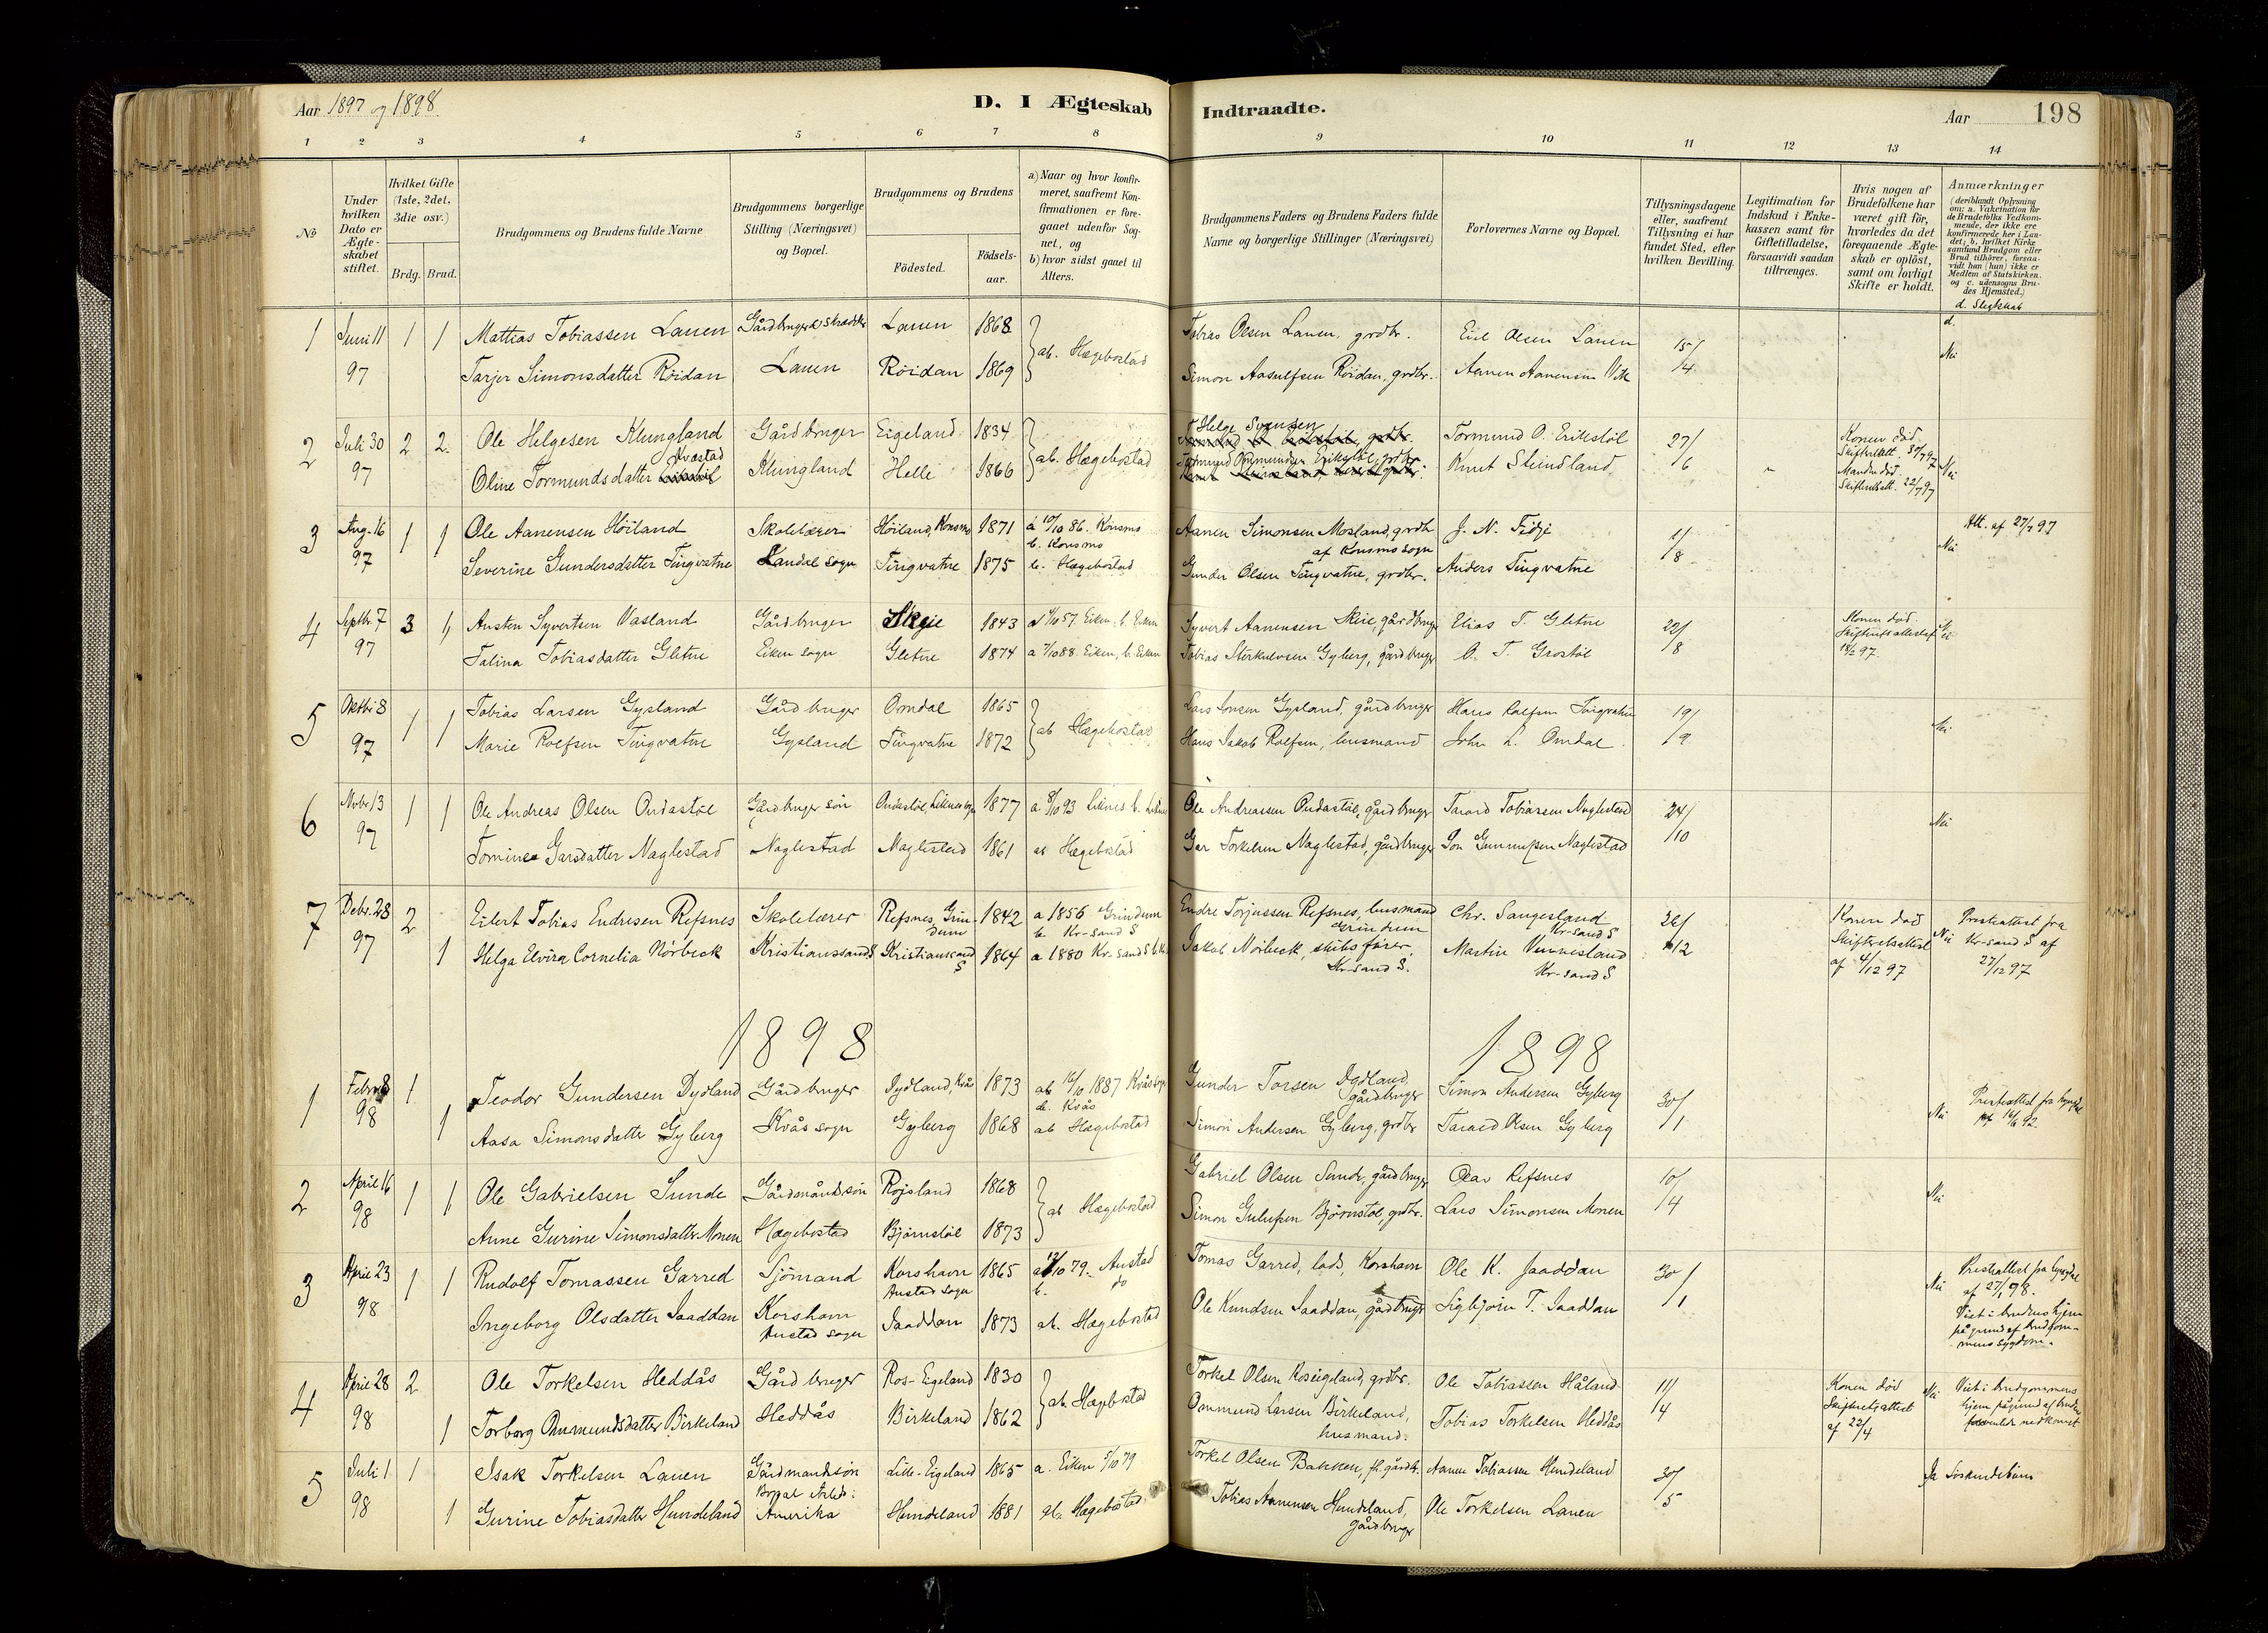 Aar 1897 og 1898.
D. I Ægteskab Indtraadte.
Aar
198
1 2 3 4 5 6 7 8 9 10 11 12 13 14
No
Under hvilken Dato er Ægteskabet stiftet.
Hvilket Gifte (1ste, 2det, 3die osv.)
Brdg. Brud.
Brudgommens og Brudens fulde Navne
Brudgommens borgerlige Stilling (Næringsvei) og Bopæl.
Brudgommens og Brudens
Födested.
Födsels-aar.
a) Naar og hvor konfir-
meret, saafremt Kon-
firmationen er fore-
gaaet udenfor Sog-
net, og
b) hvor sidst gaaet til
Alters.
Brudgommens Faders og Brudens Faders fulde
Navne og borgerlige Stillinger (Næringsvei)
Forlovernes Navne og Bopæl.
Tillysningsdagene
eller, saafremt
Tillysning ei har
fundet Sted, efter
hvilken Bevilling.
Legitimation for
Indskud i Enke-
kassen samt for
Giftetilladelse,
forsaavidt saadan
tiltrænges.
Hvis nogen af
Brudefolkene har
været gift för,
hvorledes da det
foregaaende Ægte-
skab er oplöst,
samt om lovligt
Skifte er holdt.
Anmærkninger
(deriblandt Oplysning
om: a. Vakcination for
de Brudefolks Vedkom-
mende, der ikke ere
konfirmerede her i Lan-
det; b. hvilket Kirke-
samfund Brudgom eller
Brud tilhörer, forsaa-
vidt han (hun) ikke er
Medlem af Statskirken,
og c. udensogns Bru-
des Hjemsted.)
d. Slegtskab
1 Juni 11 1 1 Mattias Tobiassen Lauen Gårdbruger & skrædder Lauen 1868 ab. Hægebostad Tobias Olsen Lauen, grdbr. Eiel Olsen Lauen 15/4 d. Nei
97 Tarjer Simonsdatter Röidan Lauen Röidan 1869 Simon Aasulfsen Röidan, grdbr. Aanen Aanensen Vik
2 Juli 30 2 2 Ole Helgesen Klungland Gårdbruger Eigeland 1834 ab. Hægebostad Helge Svensen Tormund O. Erikstöl 27/6 Konen död
Skifteratt. 30/7 97 Nei
97 Oline Tormundsdatter Kvåstad Klungland Helle 1866 Tormund Ommundsen Erikstöl, grdbr. Knut Steindland Manden död.
Skifteratt. 22/7 97
3 Aug. 16 1 1 Ole Aanensen Höiland Skolelærer Höiland, Konsmo 1871 a 10/10 86. Konsmo
b. Konsmo Aanen Simonsen Mosland, grdbr
af Konsmo sogn J. N. Fidje 1/8 Nei Att. af 27/7 97
97 Severine Gundersdatter Tingvatne Landal sogn Tingvatne 1875 b. Hægebostad Gunder Olsen Tingvatne, grdbr. Anders Tingvatne
4 Septbr. 7 3 1 Austen Syvertsen Vasland Gårdbruger Skeie 1843 57. Eiken, b. Eiken Syvert Aanensen Skeie, gårdbruger Elias T. Gletne 22/8 Konen död.
Skifteratt 18/2 97.
97 Talina Tobiasdatter Gletne Eiken sogn Gletne 1874 a 7/10 88. Eiken, b. Eiken Tobias Sterkulvsen Gyberg, gårdbruger O. T. Grostöl
5 Oktbr 8 1 1 Tobias Larsen Gysland Gårdbruger Omdal 1865 ab Hægebostad Lars Gysland, gårdbruger Hans Rolfsen Tingvatne 19/9 Nei
97 Marie Rolfsen Tingvatne Gysland Tingvatne 1872 Hans Jakob Rolfsen, husmand John L. Omdal
6 Novbr. 13 1 1 Ole Andreas Olsen Ondastöl Gårdbruger sön 1877 a 8/10 93 Liknes b. Liknes Ole Andreassen Ondastöl, gårdbruger Tarald Tobiassen Naglestad 24/10 Nei
97 Tomine Garsdatter Naglestad Naglestad Naglestad 1861 ab Hægebostad Gar Torkelsen Naglestad, gårdbruger Jon Gunnufsen Naglestad
7 Debr. 28 2 Eilert Tobias Endresen Refsnes Skolelærer Refsnes, Grin-
dum 1842 a 1856 Grindum
b. Kr-sand S Endre Torjussen Refsnes, husmand
Grindum Chr. Sangesland
Kr-sand S 26/12 Konen död
Skifteretsattest
af 4/12 97 Nei Presteattest fra
Kr-sand S af
27/12 97
97 1 Helga Elvira Cornelia Nörbeck Kristianssand S Kristianssand
S 1864 a 1880 Kr-sand S Jakob Nörbeck, skibsförer,
Kr-sand S. Martin Vennesland
Kr-sand S
1898 1898
1 Febr. 8 1 Teodor Gundersen Dydland Gårdbruger Dydland, Kvås 1873 ab 16/10 1887 Kvås sogn
b. Kvås Gunder Torsen Dydland,
gårdbruger Simon Andersen Gyberg 30/1 Nei Presteattest fra Lyngdal
98 1 Aasa Simonsdatter Gyberg Kvås sogn Gyberg 1868 ab Hægebostad Simon Andersen Gyberg, grdbr Tarald Olsen Gyberg
2 April 16 1 1 Ole Gabrielsen Sunde Gårdmandssön Röjsland 1868 ab Hægebostad Gabriel Olsen Sunde, gårdbruger Olav Refsnes 10/4 Nei
98 Anne Gurine Simonsdatter Monen Hægebostad Björnstöl 1873 Simon Gulufsen Björnstöl, grdbr. Lars Simonsen Monen
3 April 23 1 1 Rudolf Tomassen Garred Sjömand Korshavn
Austad sogn 1865 a 12/10 79. Austad
b. do Tomas Garred, lods, Korshavn Ole K. Jaaddan 30/1 Nei Presteattest fra Lyngdal
af 27/1 98.
Viet i brudens hjem
på grund af brudgom-
mens sygdom.
98 Ingeborg Olsdatter Jaaddan Korshavn
Austad sogn Jaaddan 1873 ab. Hægebostad Ole Knudsen Jaaddan, gårdbruger Sigbjörn T. Jaaddan
4 April 28 2 Ole Torkelsen Heddås Gårdbruger Ros-Eigeland 1830 ab Hægebostad Torkel Olsen Roseigeland, grdbr. Ole Tobiassen Håland 11/4 Konen död
Skifteretsattest
af 22/4 Nei Viet i brudgommens
hjem på grund af brudens
nedkomst
98 1 Torborg Ommundsdatter Birkeland Heddås Birkeland 1862 Ommund Larsen Birkeland,
husmand. Tobias Torkelsen Heddås
5 Juli 1 1 Isak Torkelsen Lauen Gårdmandssön Lille-Eigeland 1865 a. Eiken 5/10 79 Torkel Olsen Bakken, fh. gårdbr. Aanen Tobiassen Hundeland 30/5 Ja Söskendebarn
98 1 Gurine Tobiasdatter Hundeland Amerika Hundeland 1881 ab. Hægebostad Tobias Aanensen Hundeland,
Gårdbruger Ole Torkelsen Lauen